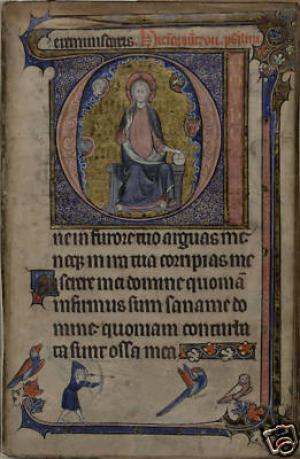 ne reminiscaris.
Domine in furore tuo arguas me
neq; in ira tua corripias me
Miserere mei domine quoniam
infirmus sum sana me do
mine quoniam conturba
ta sunt ossa mea